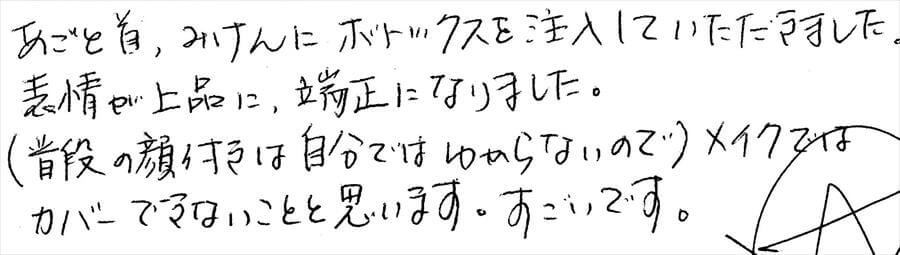 あごと首，みけんに ボトックスを注入していただきました。
表情が上品に，端正になりました。
(普段の顔付きは自分ではわからないので)メイクでは
カバーできないことと思います。すごいです。